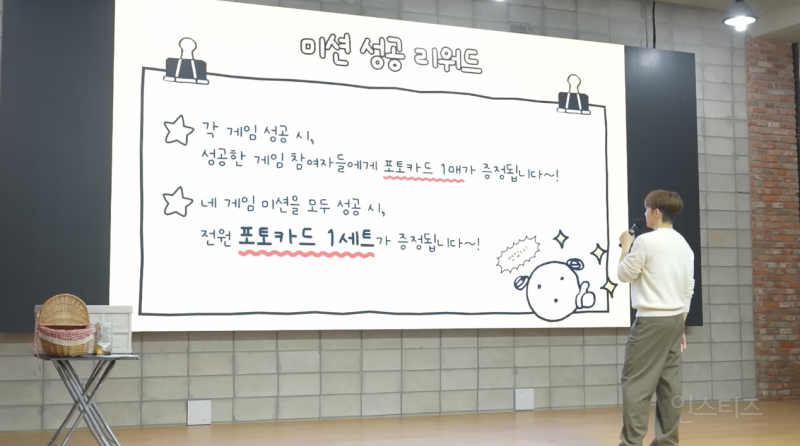 미션 성공 리워드
각 게임 성공 시,
성공한 게임 참여자들에게 포토카드 1매가 증정됩니다~!
네 게임 미션을 모두 성공 시,
전원 포토카드 1세트가 증정됩니다~!
인스티즈